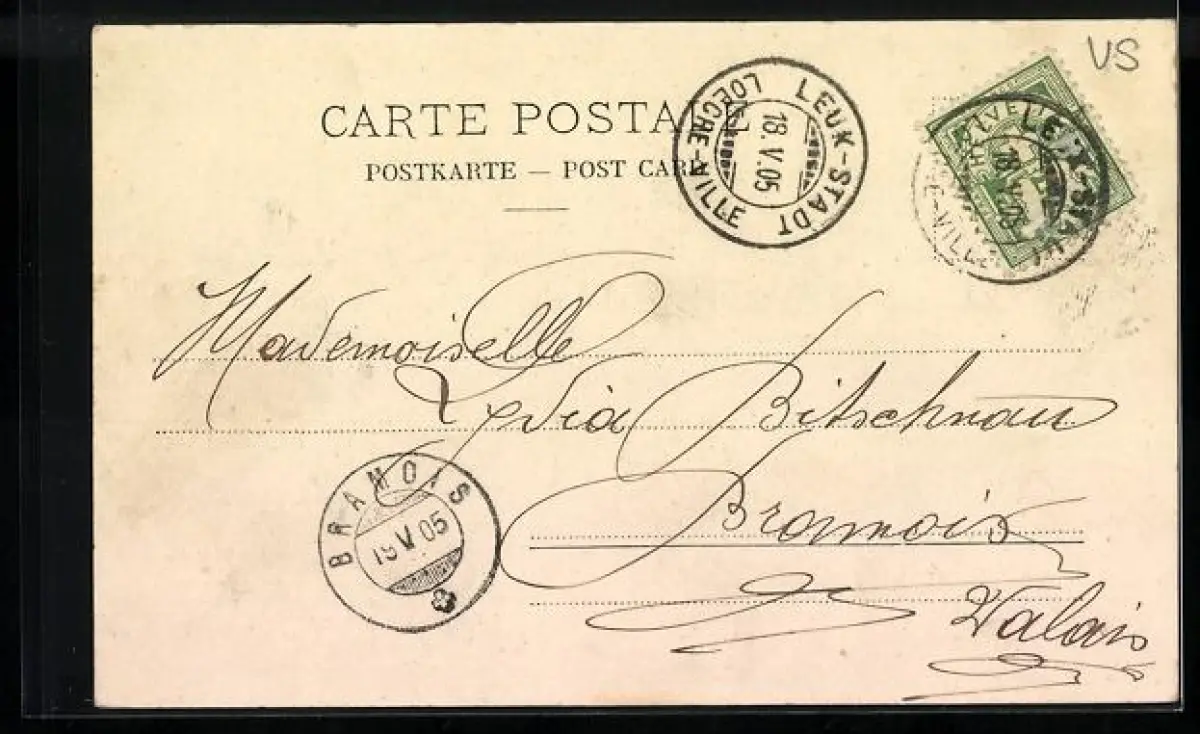 VS
CARTE POSTALE
POSTKARTE — POST CARD
LEUK-STADT
18.V.05
LOECHE-VILLE
HELVETIA
LEUK-STADT
18.V.05
E-VILLE
Mademoiselle
Lydia Bitschnau
Bramois
Valais
BRAMOIS
19.V.05